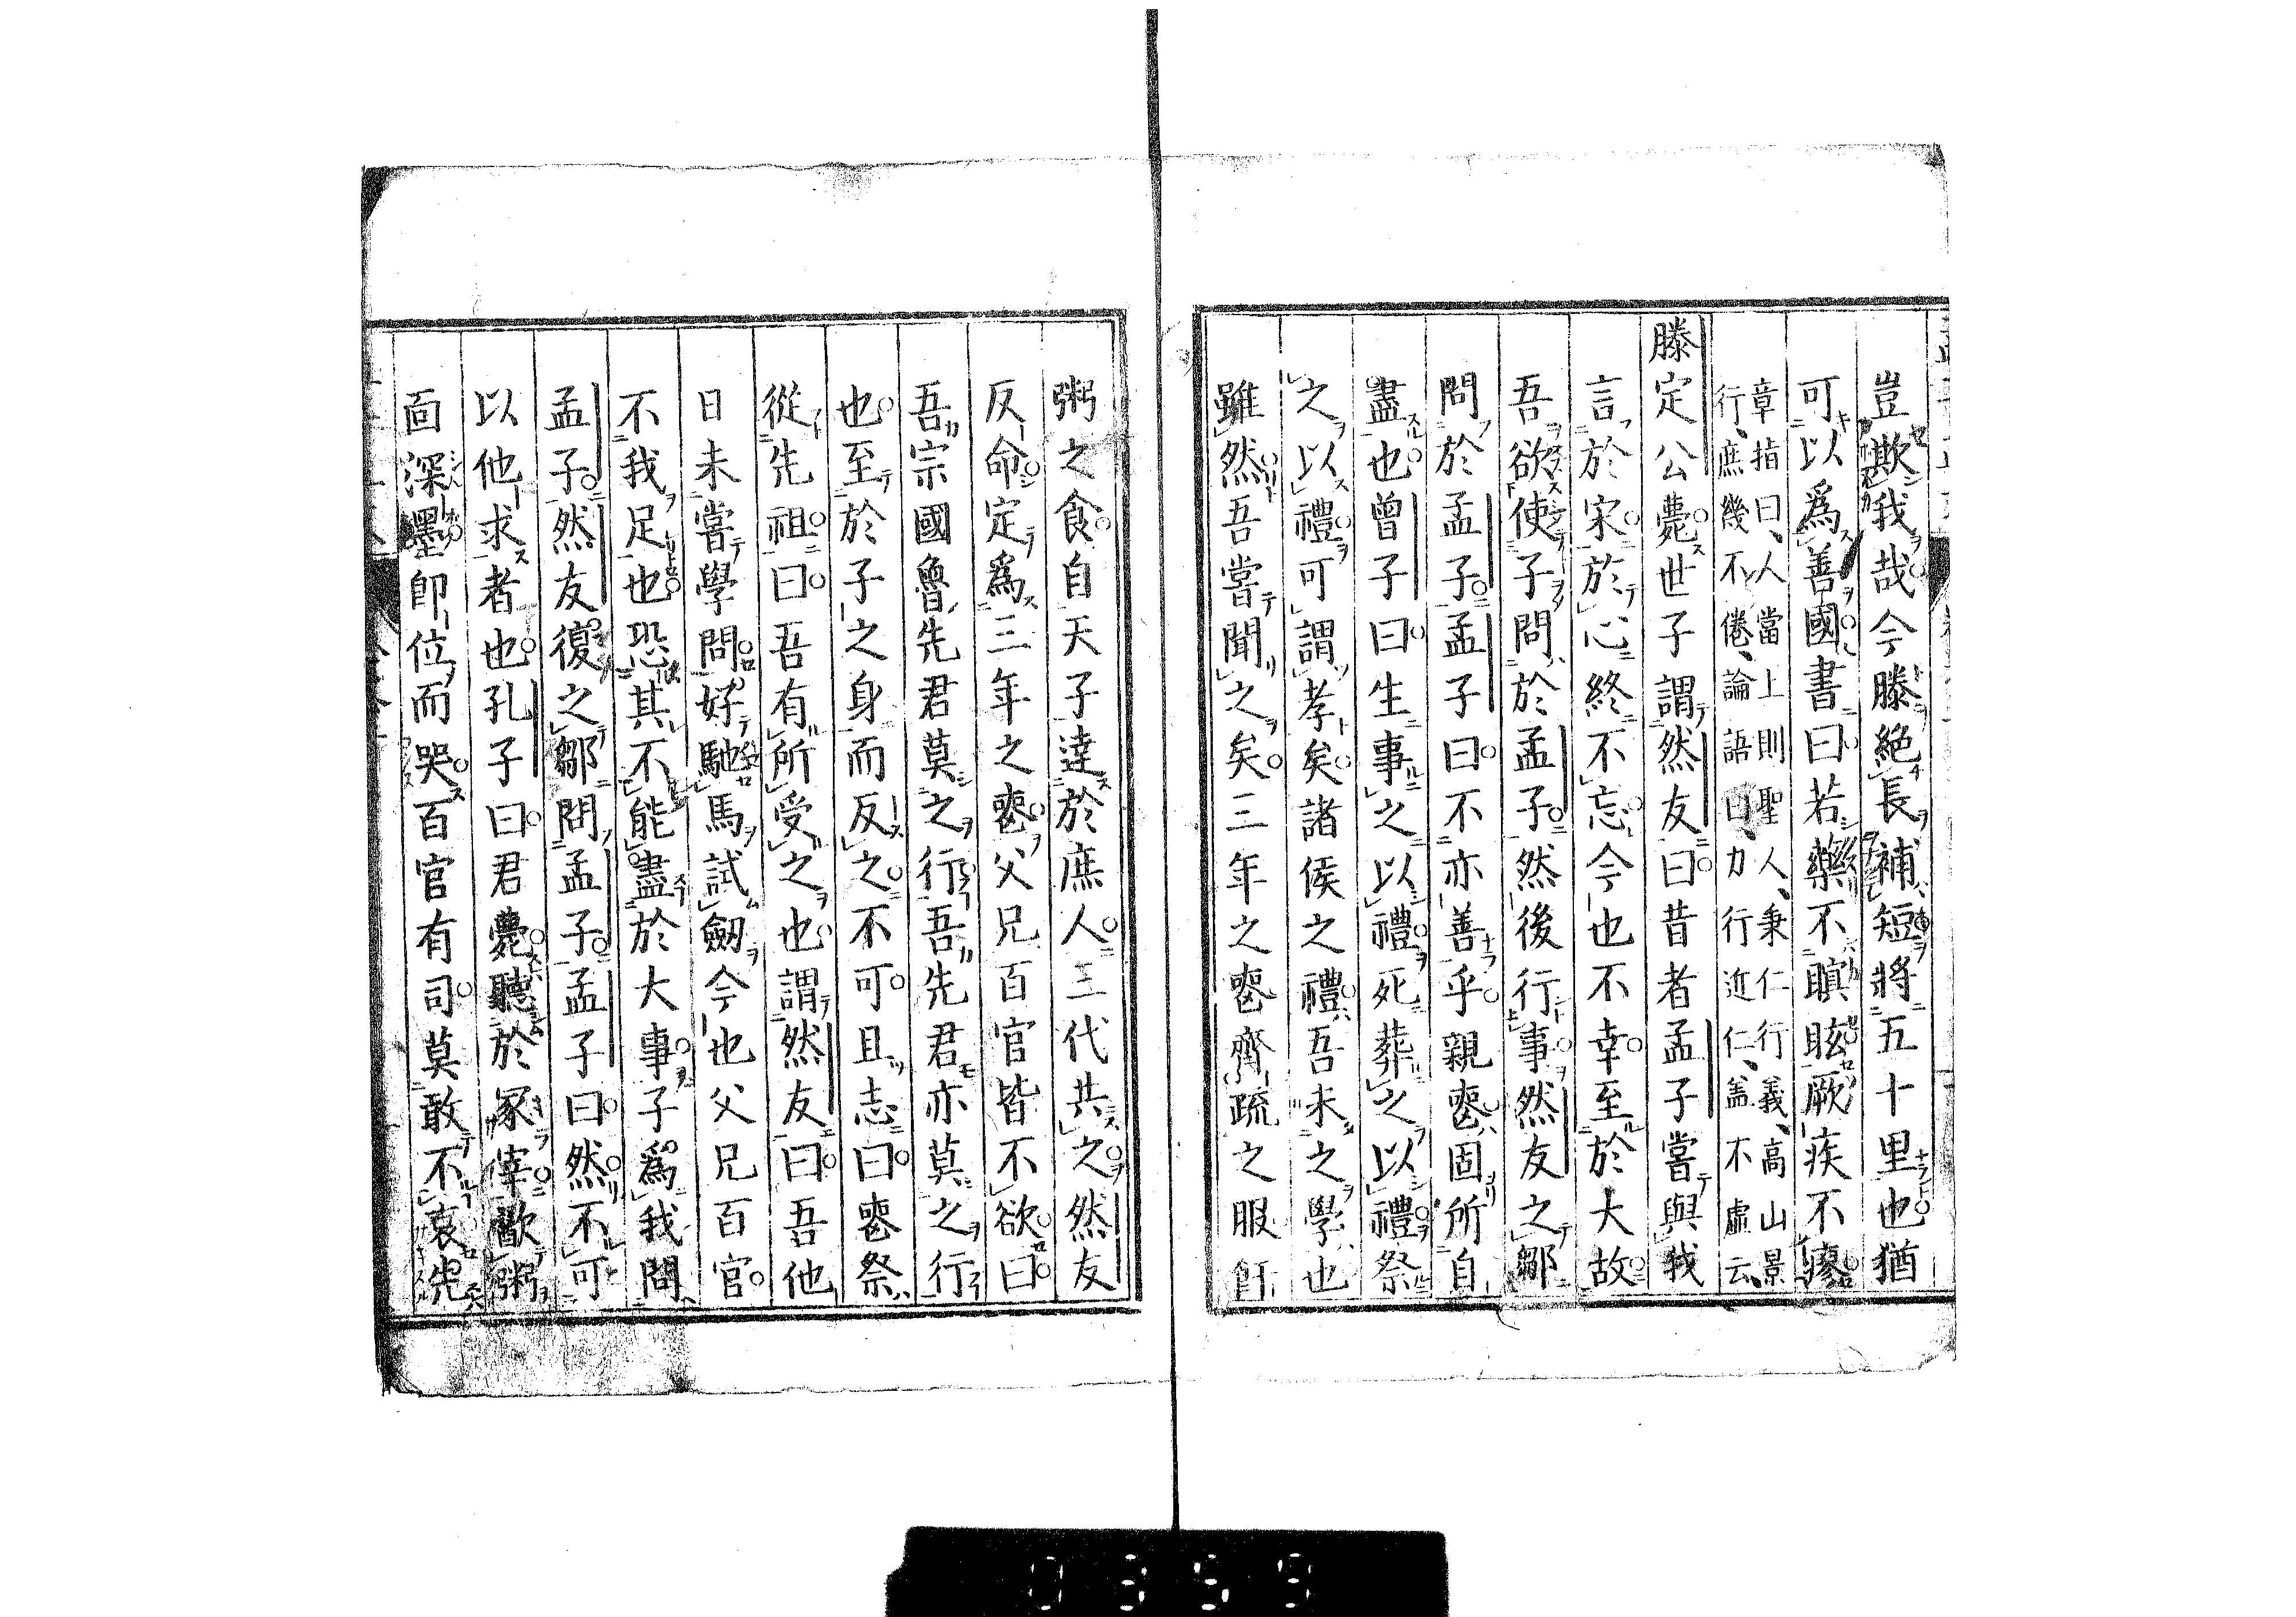 豈欺我哉今滕絕長補短將五十里也猶
可以爲善國書曰若藥不瞑眩厥疾不瘳
章指曰、人當上則聖人、秉仁行義、高山景
行、庶幾不倦、論語曰、力行近仁、盖不虛云、
滕定公薨世子謂然友曰昔者孟子嘗與我
言於宋於心終不忘今也不幸至於大故
吾欲使子問於孟子然後行事然友之鄒
問於孟子孟子曰不亦善乎親喪固所自
盡也曾子曰生事之以禮死葬之以禮祭
之以禮可謂孝矣諸侯之禮吾未之學也
雖然吾嘗聞之矣三年之喪齊疏之服飦
粥之食自天子達於庶人三代共之然友
反命定爲三年之喪父兄百官皆不欲曰
吾宗國魯先君莫之行吾先君亦莫之行
也至於子之身而反之不可且志曰喪祭
從先祖曰吾有所受之也謂然友曰吾他
日未嘗學問好馳馬試劒今也父兄百官
不我足也恐其不能盡於大事子爲我問
孟子然友復之鄒問孟子孟子曰然不可
以他求者也孔子曰君薨聽於冢宰歠粥
面深墨即位而哭百官有司莫敢不哀先
0359